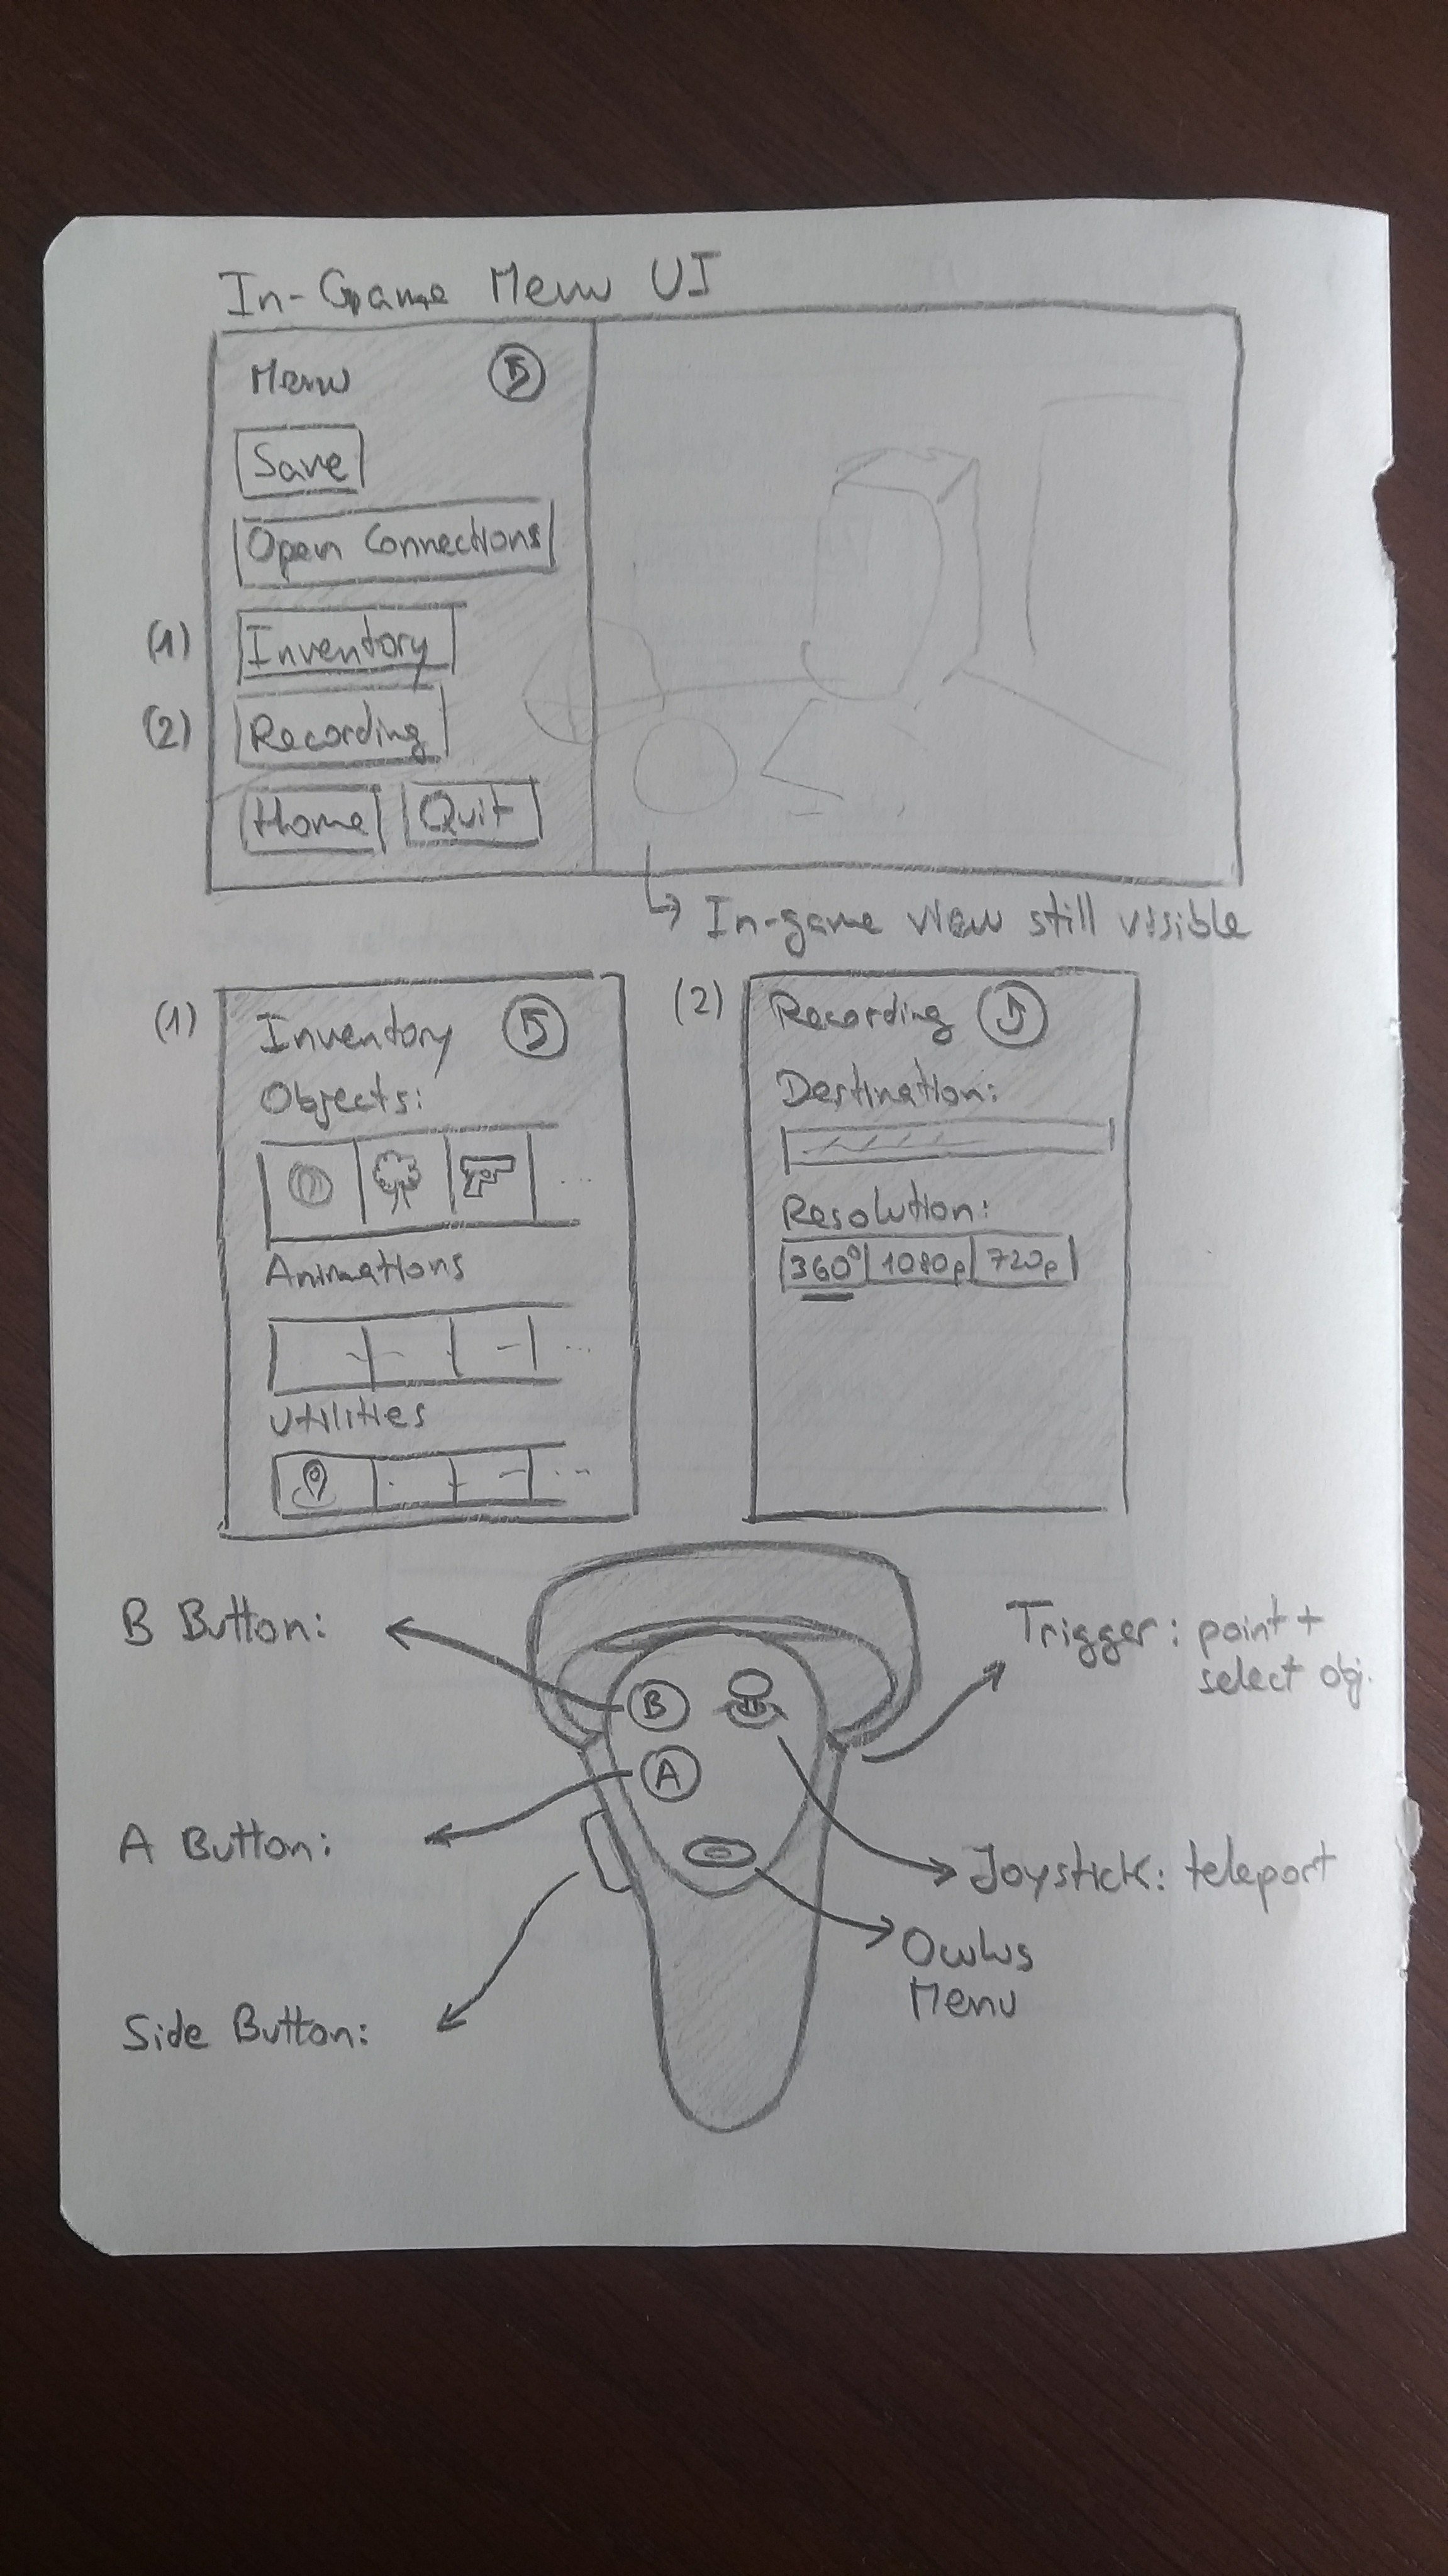 In-Game Menu UI
Menu
Save
Open Connections
(1) Inventory
(2) Recording
Home Quit
In-game view still visible
(1) Inventory
Objects:
...
Animations
...
Utilities
...
(2) Recording
Destination:
Resolution:
360° 1080p 720p
B Button:
B
A
A Button:
Side Button:
Trigger: point +
select obj.
Joystick: teleport
Oculus
Menu